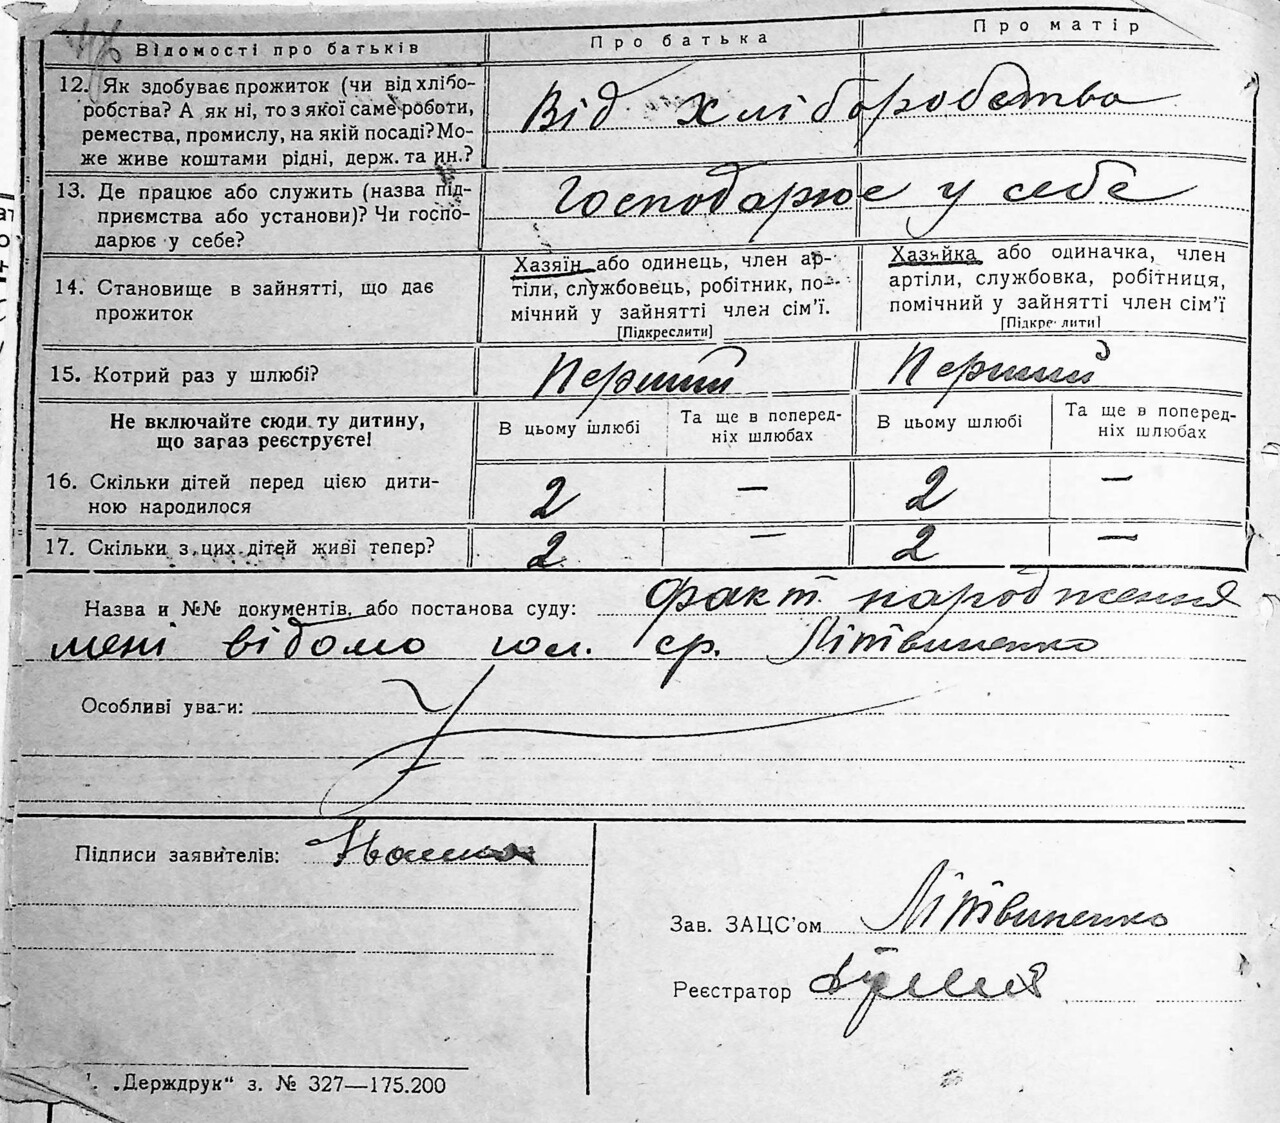 Відомості про батьків
Про батька
Про матір
12. Як здобуває прожиток (чи від хлібо-
робства? А як ні, то з якої саме роботи,
ремества, промислу, на якій посаді? Мо-
же живе коштами рідні, держ. та ин.?
Від хліборобства
13. Де працює або служить (назва під-
приємства або установи)? Чи госпо-
дарює у себе?
Господарює у себе
14. Становище в зайнятті, що дає
прожиток
Хазяїн або одинець, член ар-
тіли, службовець, робітник, по-
мічний у зайнятті член сім'ї.
[Підкреслити]
Хазяйка або одиначка, член
артіли, службовка, робітниця,
помічний у зайнятті член сім'ї
[Підкреслити]
15. Котрий раз у шлюбі?
Перший
Перший
Не включайте сюди ту дитину,
що зараз реєструєте!
В цьому шлюбі
Та ще в поперед-
ніх шлюбах
В цьому шлюбі
Та ще в поперед-
ніх шлюбах
16. Скільки дітей перед цією дити-
ною народилося
2 — 2 —
17. Скільки з цих дітей живі тепер?
2 — 2 —
Назва и №№ документів, або постанова суду: Факт народження
мені відомо гол. ср. Літвиненко
Особливі уваги:
Підписи заявителів:
Зав. ЗАЦС'ом Літвиненко
Реєстратор
„Держдрук“ з. № 327—175.200